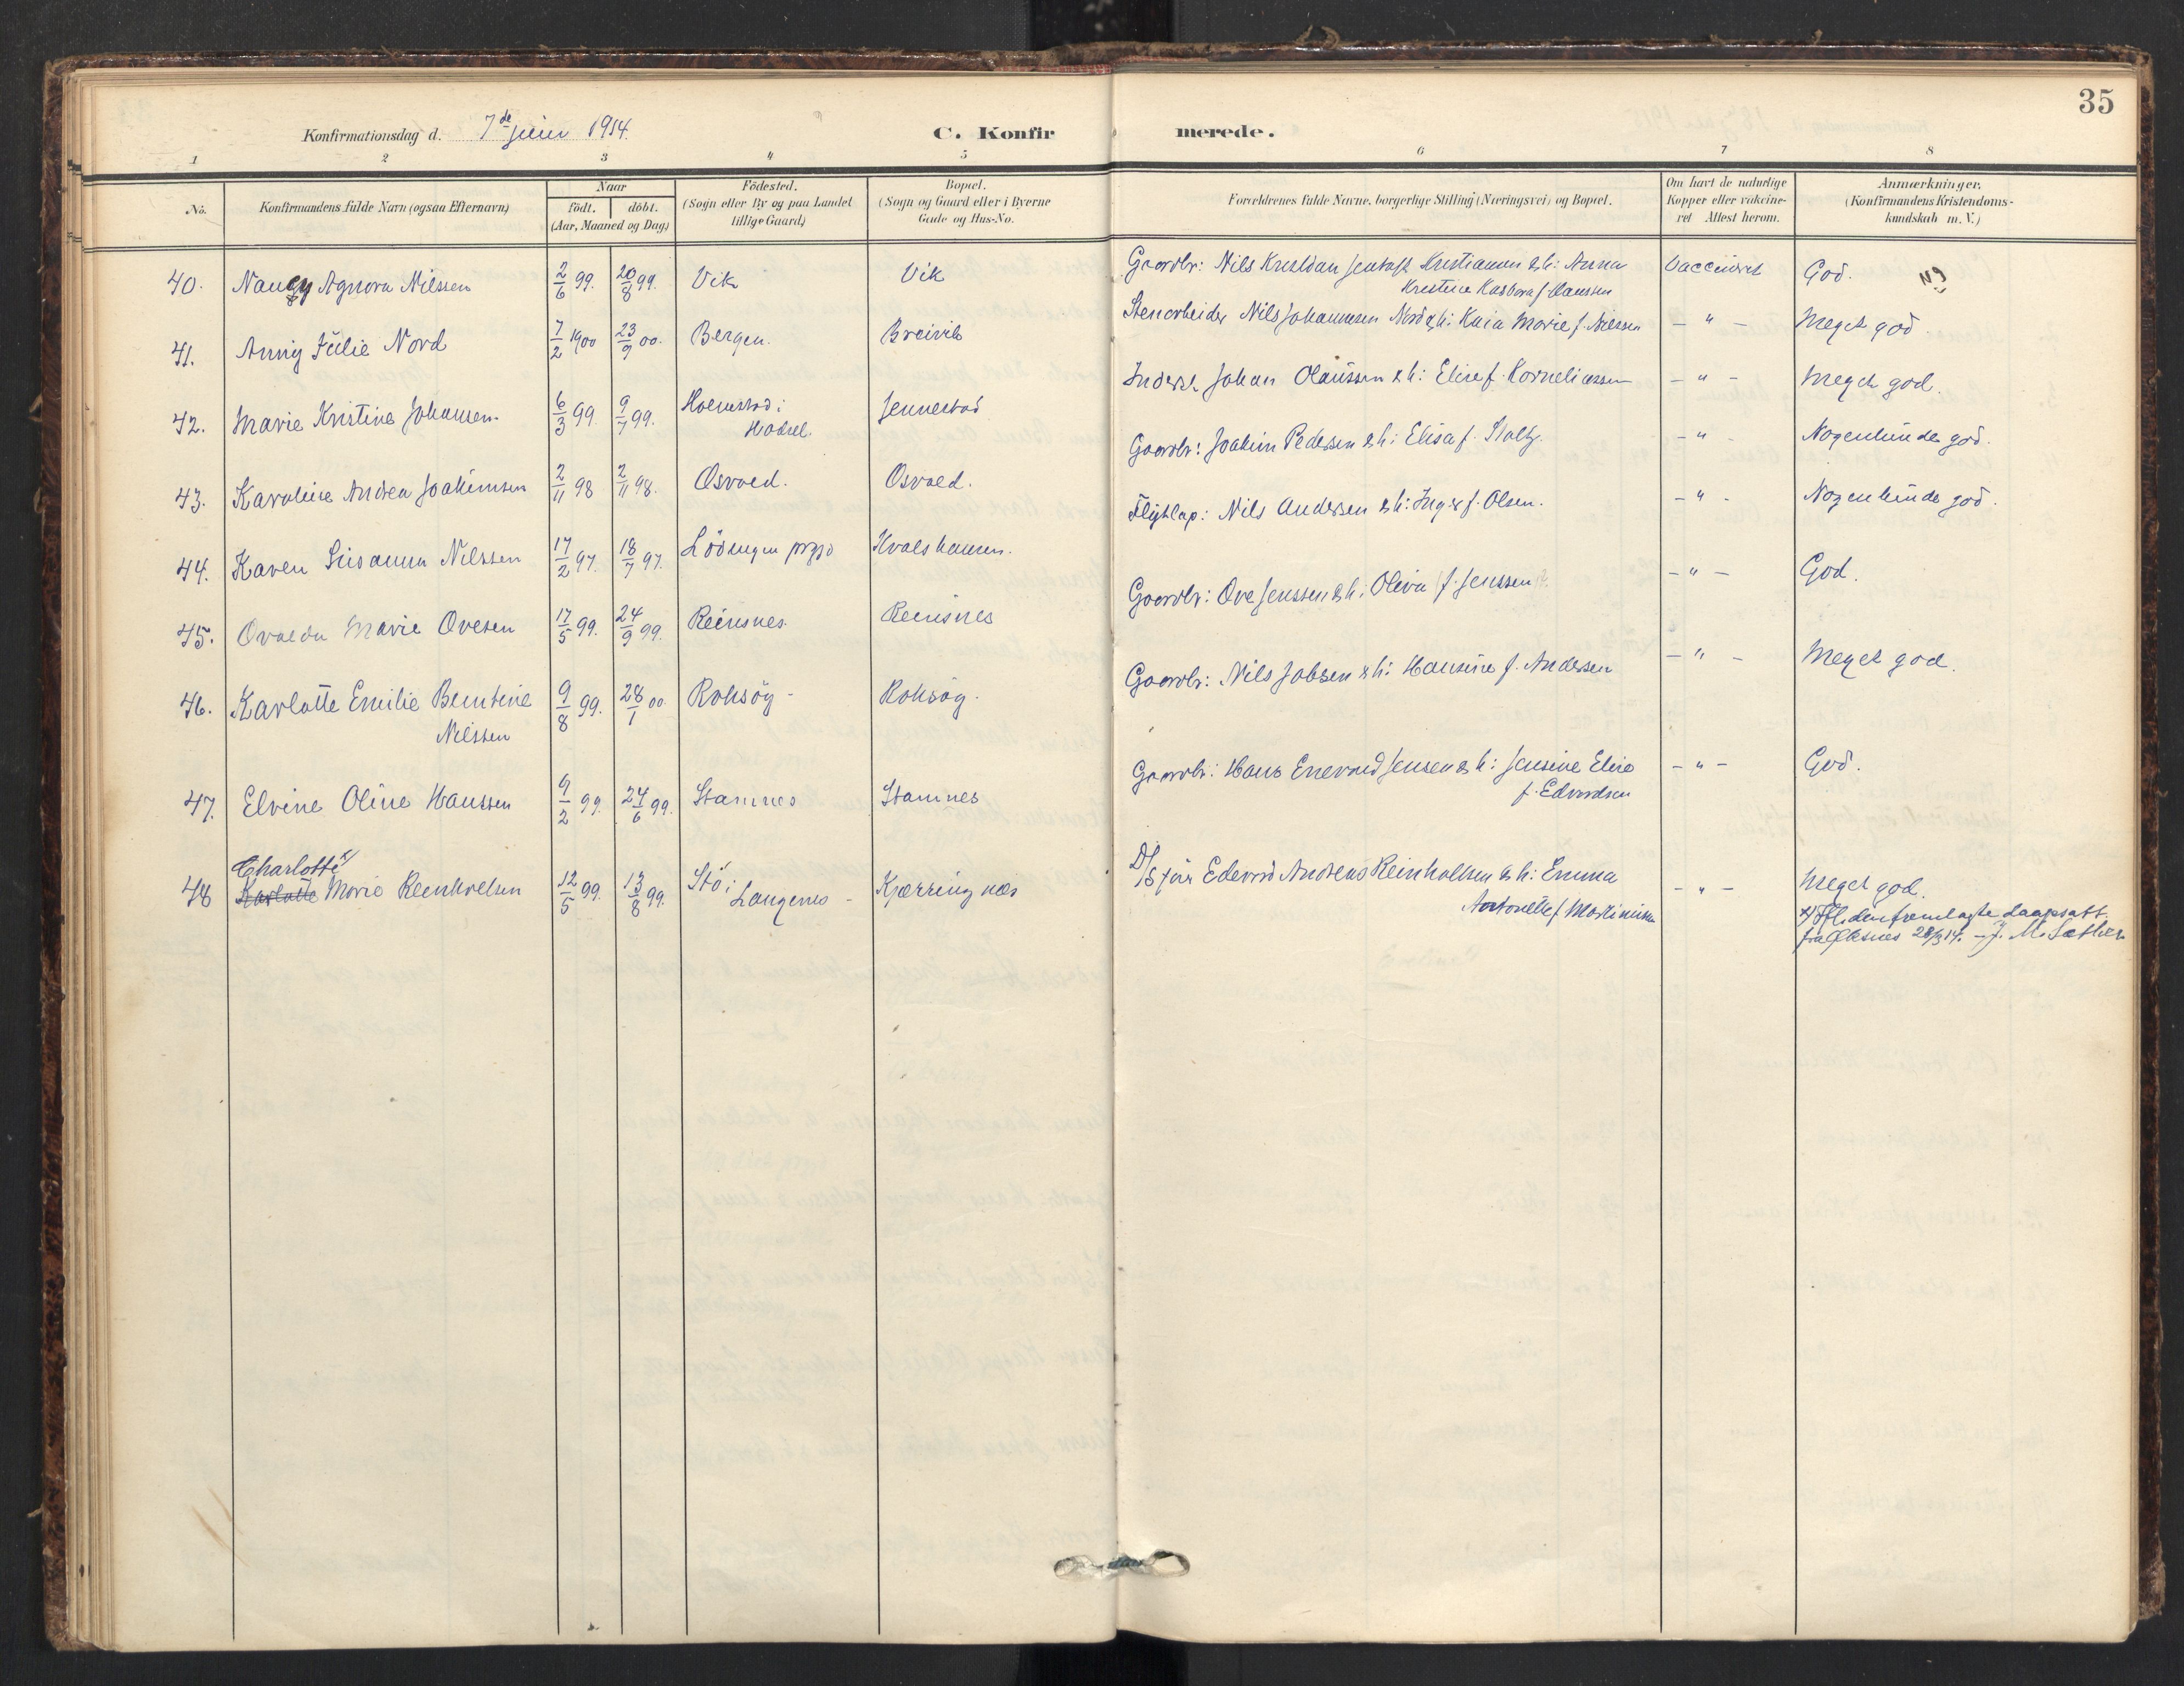 35
Konfirmationsdag d. 7de juni 1914.
C. Konfirmerede.
1 2 3 4 5 6 7 8
No.
Konfirmandens fulde Navn (ogsaa Efternavn)
Naar
födt. döbt.
(Aar, Maaned og Dag)
Födested.
(Sogn eller By og paa Landet
tillige Gaard)
Bopæl.
(Sogn og Gaard eller i Byerne
Gade og Hus-No.
Forældrenes fulde Navne, borgerlige Stilling (Næringsvei) og Bopæl.
Om havt de naturlige
Kopper eller vakcine-
ret Attest herom.
Anmærkninger.
(Konfirmandens Kristendoms-
kundskab m. V.)
40. Nancy Agnora Nilssen 2/6 99. 20/8 99. Vik Vik Gaardbr: Nils Kristian Kristiansen & h: Anna Vaccineret God.
Kristine f. Hanssen
41. Anny Julie Nord 7/2 1900 23/9 00. Bergen. Breivik Stenarbeider Nils Johannesen Nord & h: Kaia Marie f. Nilssen - " - Meget god.
42. Marie Kristine Johansen. 6/3 99 9/7 99. Holmstad i Jennestad Inderst Johan Olaussen & h: Elise f. Korneliussen - " - Meget god.
Hadsel.
43. Karoline Andrea Joakimsen 2/11 98 2/11 98. Osvold. Osvold. Gaardbr: Joakim Pedersen & h: Elisa f. Stoltz. - " - Nogenlunde god.
44. Karen Susanna Nilssen 17/2 97. 18/7 97. Lödingen prgjd Kvalshausen. Flytlap: Nils Andersen & h: Inger f. Olsen. - " - Nogenlunde god.
45. Ovaeda Marie Ovesen 17/5 99. 24/9 99. Reinsnes. Reinsnes Gaardbr: Ove Jenssen & h: Oliva f. Jenssen - " - God.
46. Karlotte Emilie Berntine 9/8 99. 28/1 00. Roksöy - Roksöy. Gaardbr: Nils Jakbsen & h: Hansine f. Andersen - " - Meget god.
Nilssen
47. Elvine Oline Hanssen 9/2 99. 24/6 99. Stamnes Stamnes Gaardbr: Hans Enevold Jensen & h: Jensine Elise - " - God.
f. Edvardsen
Charlotte x/
48 Karlotte Marie Reinholtsen 12/5 99. 13/8 99. Stö i Kjærringnes D/Sför Edvard Andreas Reinholtsen & h: Emma - " - Meget god.
Langenes - Antonette f. Martinusen
x/ Ifl. den fremlagte daapsatt.
fra Öksnes 28/3 14. - J. M. Sæther